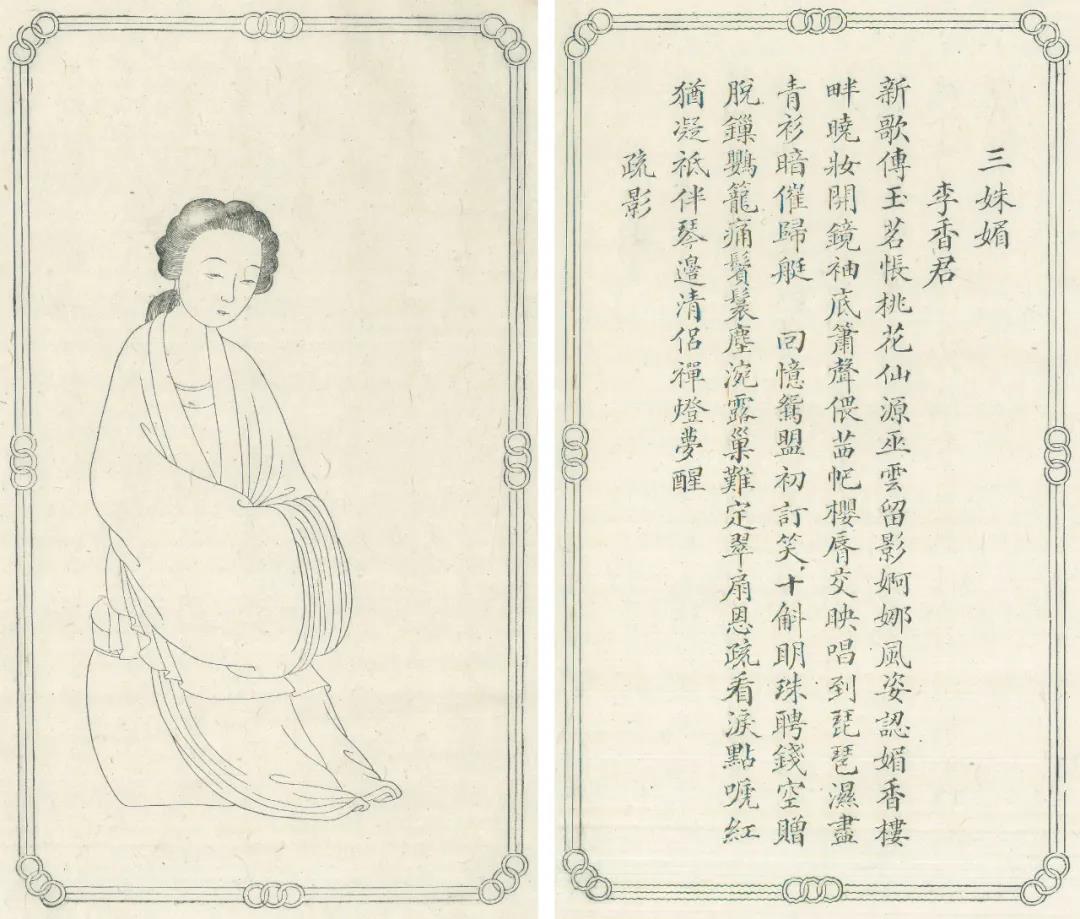 三姝媚
李香君
新歌傳玉茗悵桃花仙源巫雲留影婀娜風姿認媚香樓
畔曉妝開鏡袖底簫聲偎茁帊櫻脣交映唱到琵琶濕盡
青衫暗催歸艇　回憶鴛盟初訂笑十斛明珠聘錢空贈
脫鏁鸚籠痛鬢鬟塵涴露巢難定翠扇恩疏看淚點嗁紅
猶凝祗伴琴邊清侶禪燈夢醒
疏影